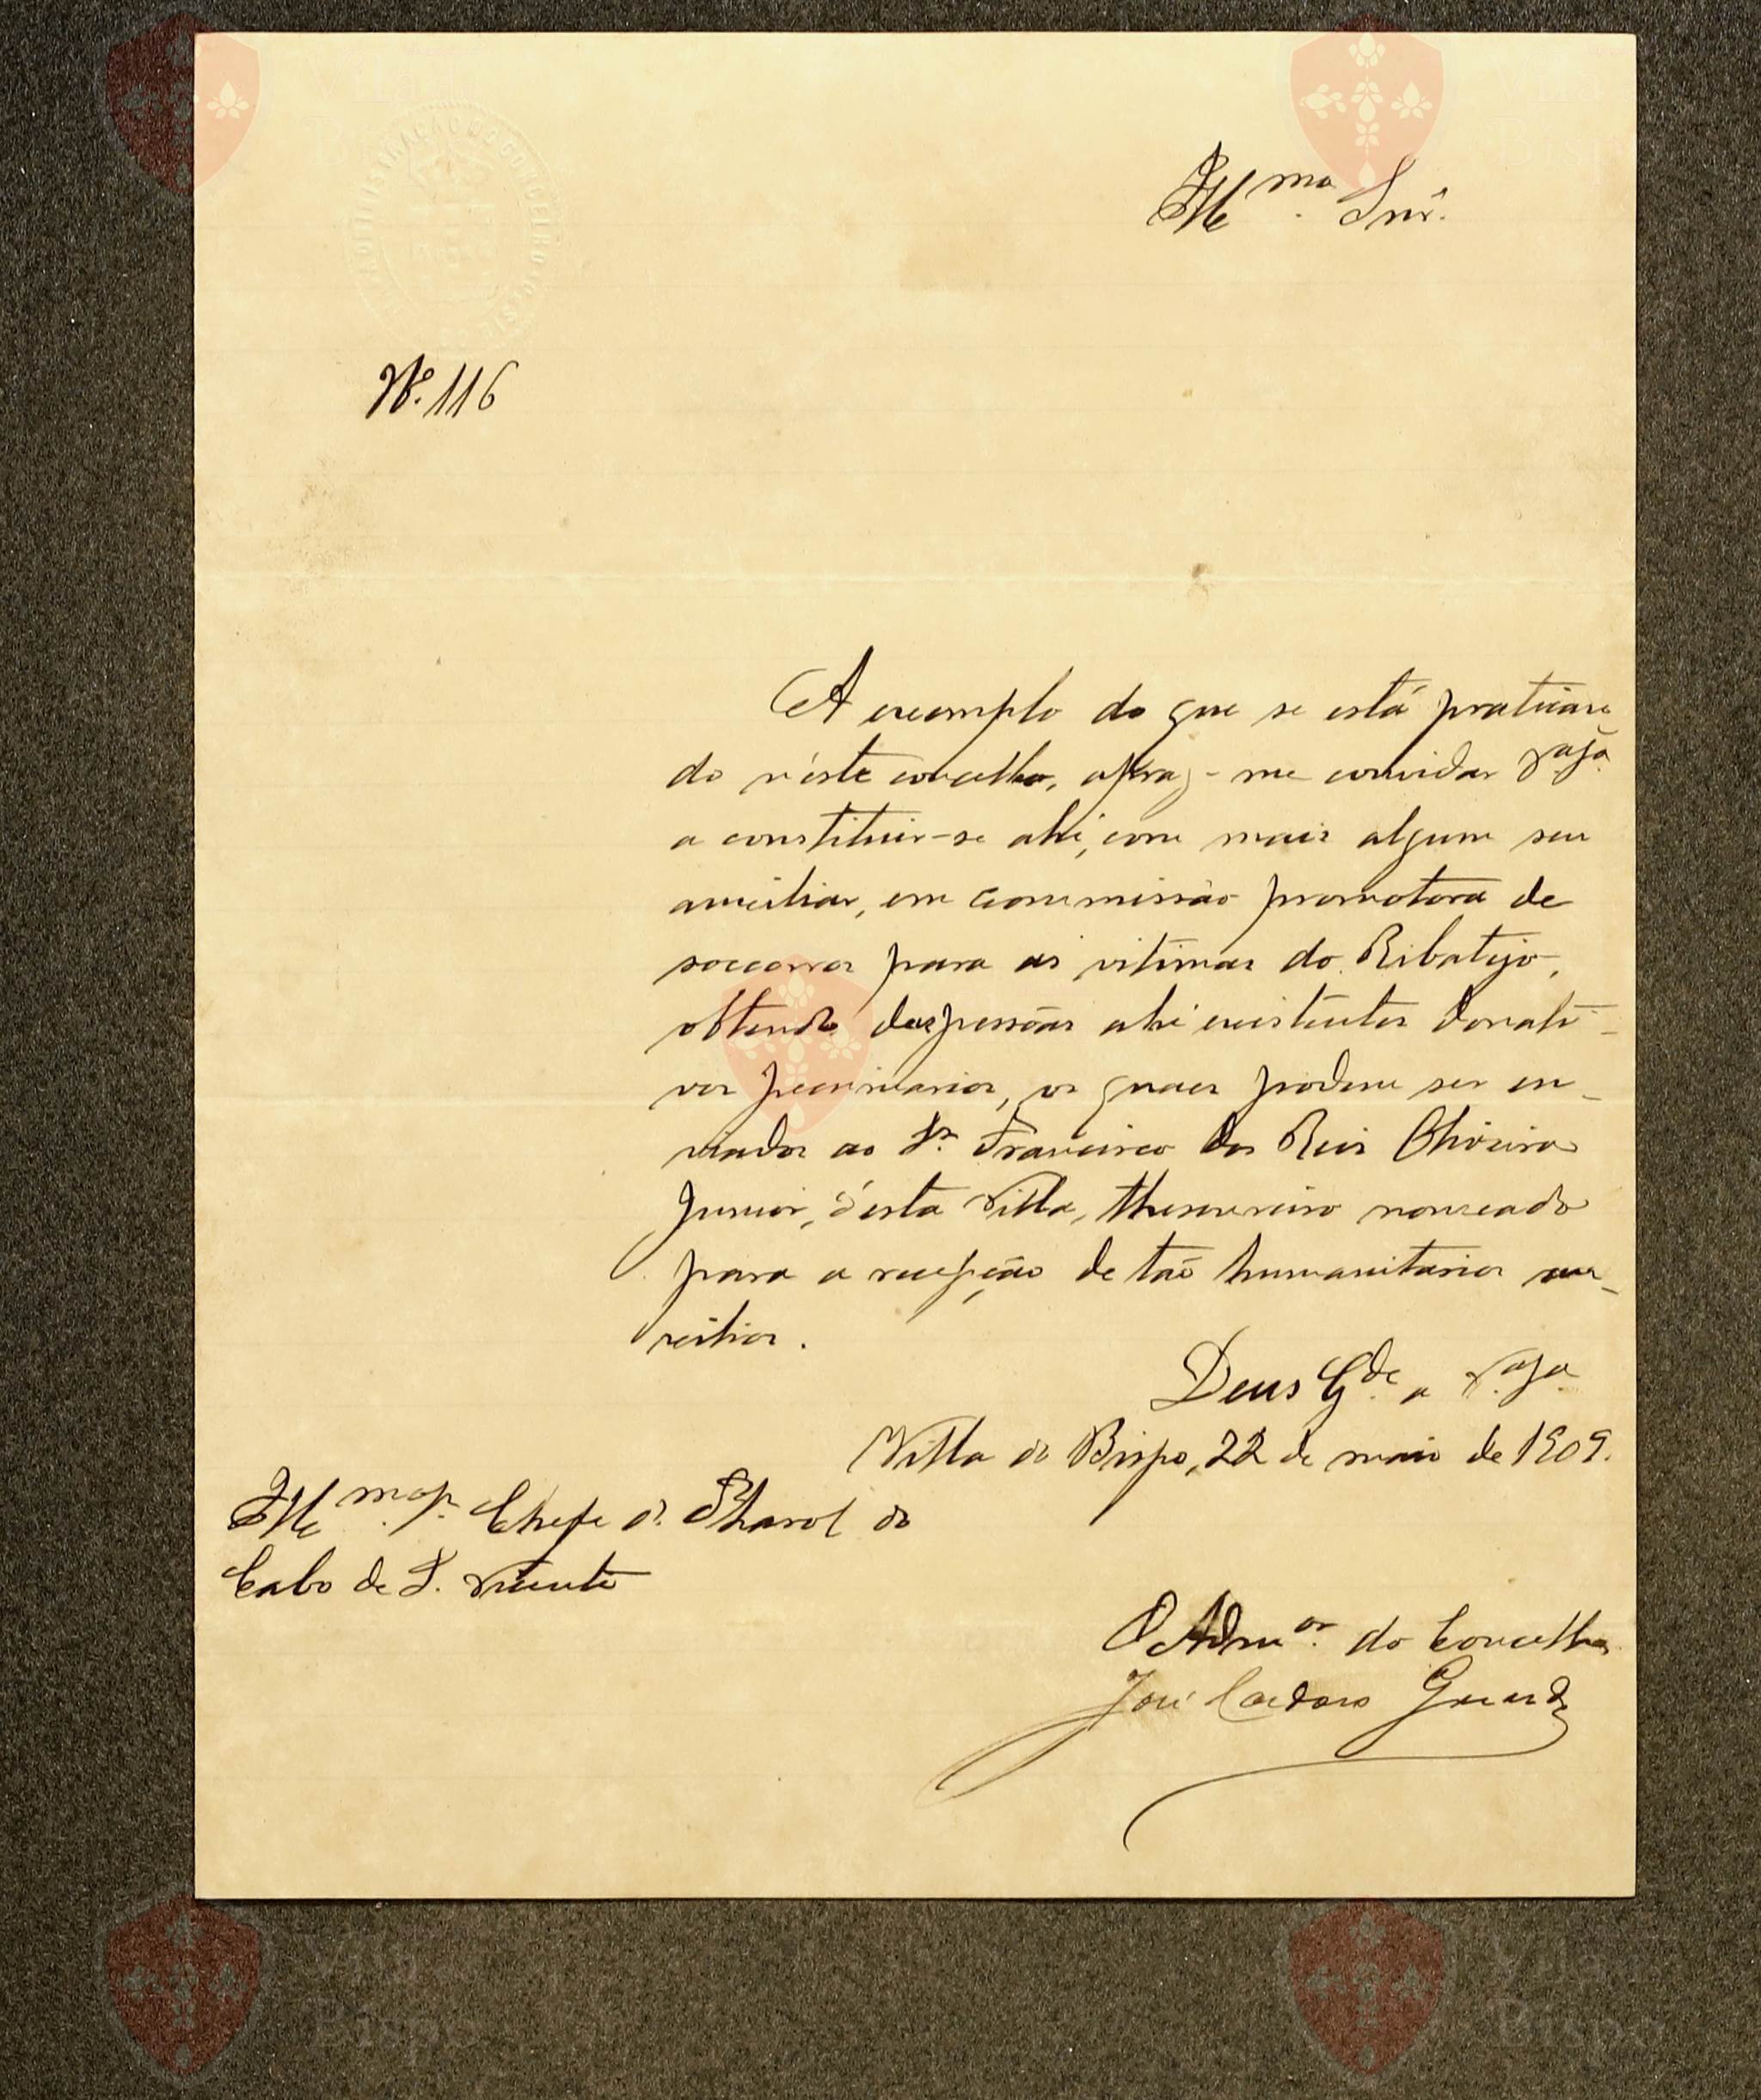 Ill.mo Snr.
ADMINISTRAÇÃO DO CONCELHO
Nº. 116
A exemplo do que se está pratican
do n'este concelho, apraz-me convidar V.a S.a
a constituir-se ahi, com mais algum seu
auxiliar, em commissão promotora de
soccorros para as vitimas do Ribatejo,
obtendo das pessôas ahi existentes donati-
vos pecuniarios, os quaes podem ser en-
viados ao Sr. Francisco dos Reis Oliveira
Junior, d'esta Villa, thesoureiro nomeado
para a recepção de tão humanitarios au-
xilios.
Deus G.de a V.a S.a
Villa do Bispo, 22 de maio de 1909.
Ill.mo Sr. Chefe do Pharol do
Cabo de S. Vicente
O Adm.or do Concelho
José Cardoso
Vila
Bispo
Vila
Bispo
Vila
Bispo